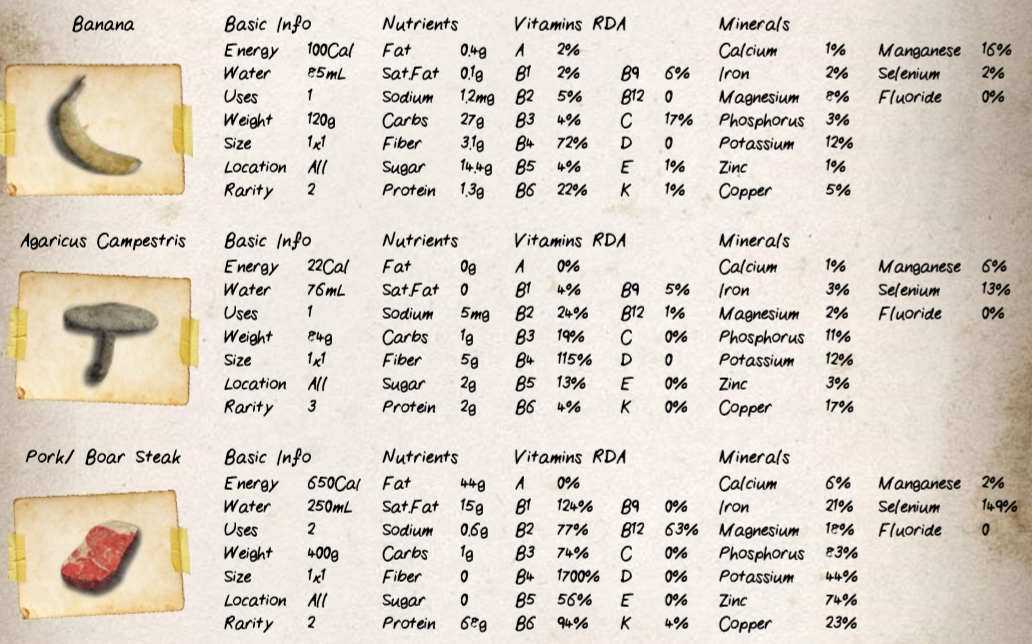 Banana Basic Info Nutrients Vitamins RDA Minerals
Energy 100Cal Fat 0.4g A 2% Calcium 1% Manganese 16%
Water 85mL Sat.Fat 0.1g B1 2% B9 6% Iron 2% Selenium 2%
Uses 1 Sodium 1.2mg B2 5% B12 0 Magnesium 8% Fluoride 0%
Weight 120g Carbs 27g B3 4% C 17% Phosphorus 3%
Size 1x1 Fiber 3.1g B4 72% D 0 Potassium 12%
Location All Sugar 14.4g B5 4% E 1% Zinc 1%
Rarity 2 Protein 1.3g B6 22% K 1% Copper 5%
Agaricus Campestris Basic Info Nutrients Vitamins RDA Minerals
Energy 22Cal Fat 0g A 0% Calcium 1% Manganese 6%
Water 76mL Sat.Fat 0 B1 4% B9 5% Iron 3% Selenium 13%
Uses 1 Sodium 5mg B2 24% B12 1% Magnesium 2% Fluoride 0%
Weight 84g Carbs 1g B3 19% C 0% Phosphorus 11%
Size 1x1 Fiber 5g B4 115% D 0 Potassium 12%
Location All Sugar 2g B5 13% E 0% Zinc 3%
Rarity 3 Protein 2g B6 4% K 0% Copper 17%
Pork/ Boar Steak Basic Info Nutrients Vitamins RDA Minerals
Energy 650Cal Fat 44g A 0% Calcium 6% Manganese 2%
Water 250mL Sat.Fat 15g B1 124% B9 0% Iron 21% Selenium 149%
Uses 2 Sodium 0.6g B2 77% B12 63% Magnesium 18% Fluoride 0
Weight 400g Carbs 1g B3 74% C 0% Phosphorus 83%
Size 1x1 Fiber 0 B4 1700% D 0% Potassium 44%
Location All Sugar 0 B5 56% E 0% Zinc 74%
Rarity 2 Protein 68g B6 94% K 4% Copper 23%